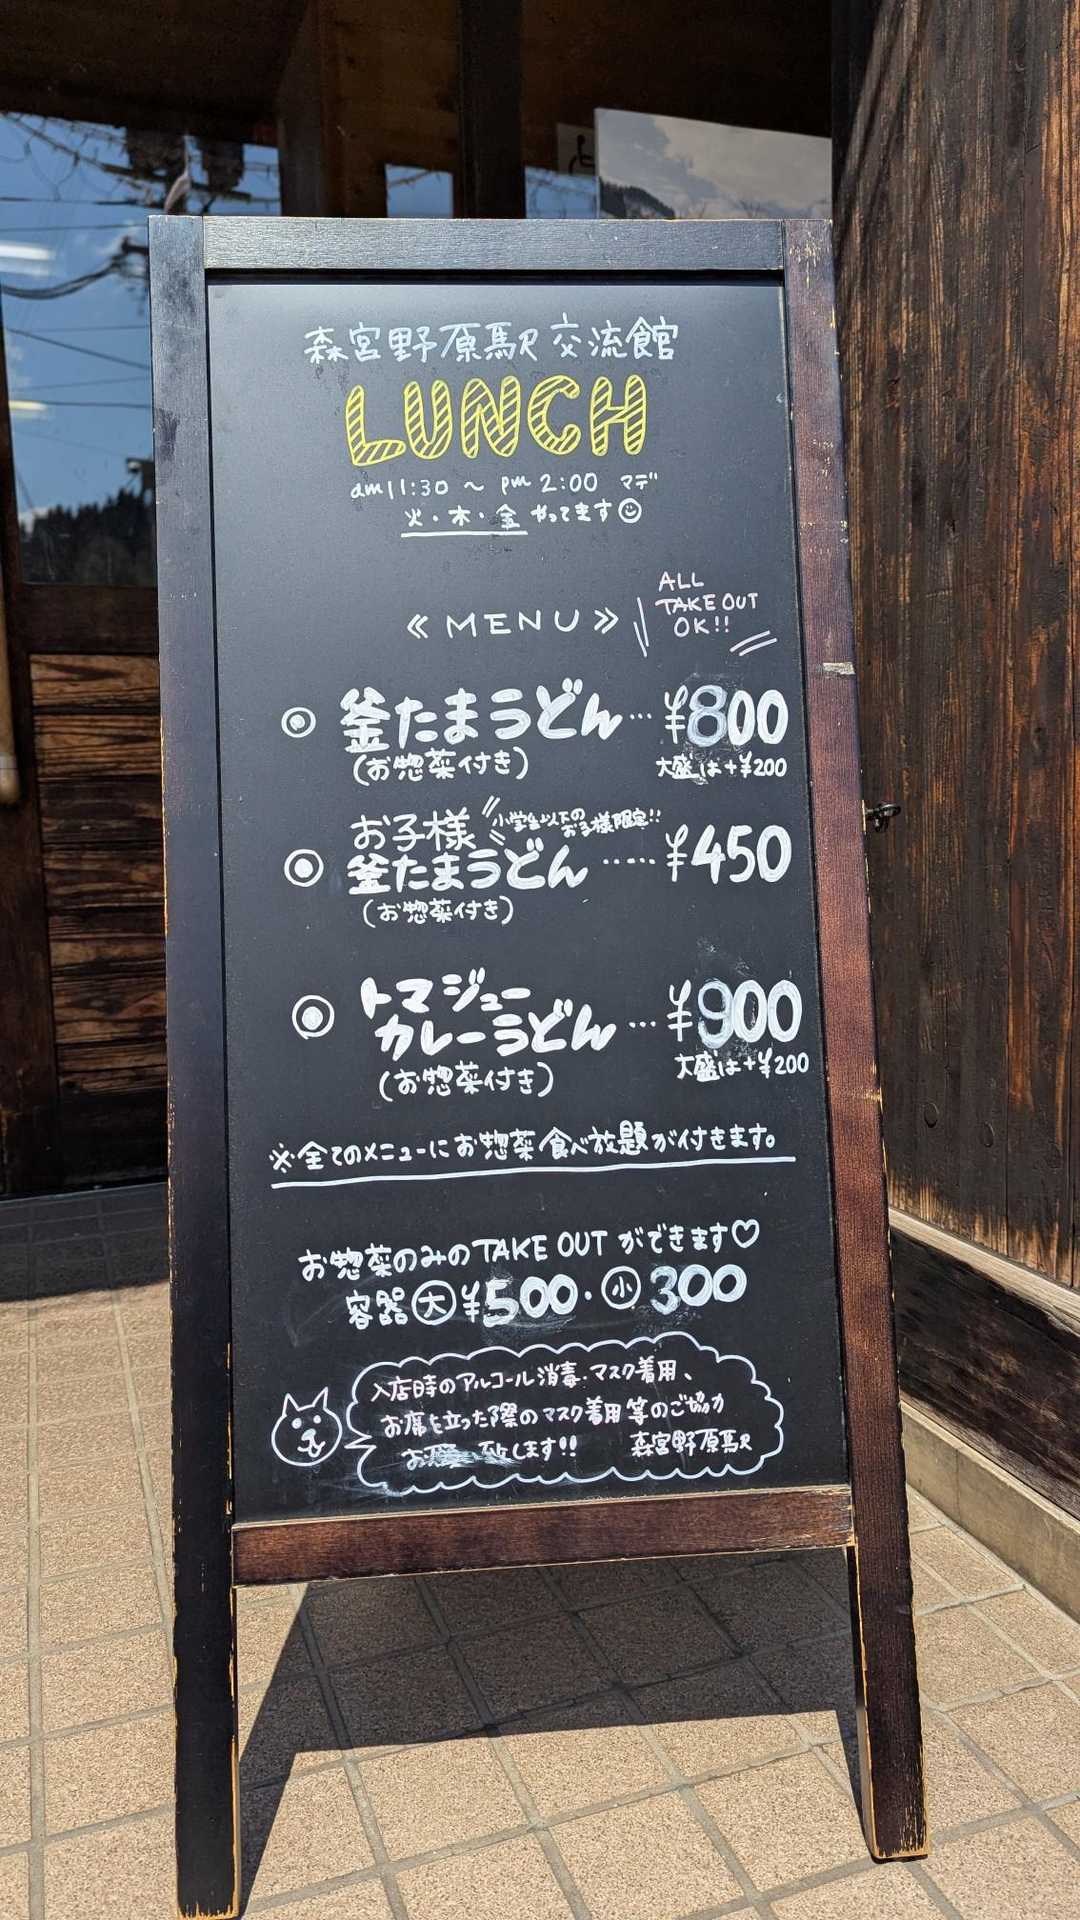 森宮野原駅 交流館
LUNCH
am11:30 〜 pm 2:00 マデ
火・木・金 やってます
ALL
TAKE OUT
OK!!
≪MENU≫
◎ 釜たまうどん… ¥800
(お惣菜付き) 大盛は+¥200
お子様 小学生以下の
お子様限定!!
◎ 釜たまうどん ….. ¥450
(お惣菜付き)
トマジュー
◎ カレーうどん … ¥900
(お惣菜付き) 大盛は+¥200
※全てのメニューにお惣菜食べ放題が付きます。
お惣菜のみのTAKE OUTができます♡
容器大¥500・小300
入店時のアルコール消毒・マスク着用、
お席を立った際のマスク着用等のご協力
お願い致します!! 森宮野原駅